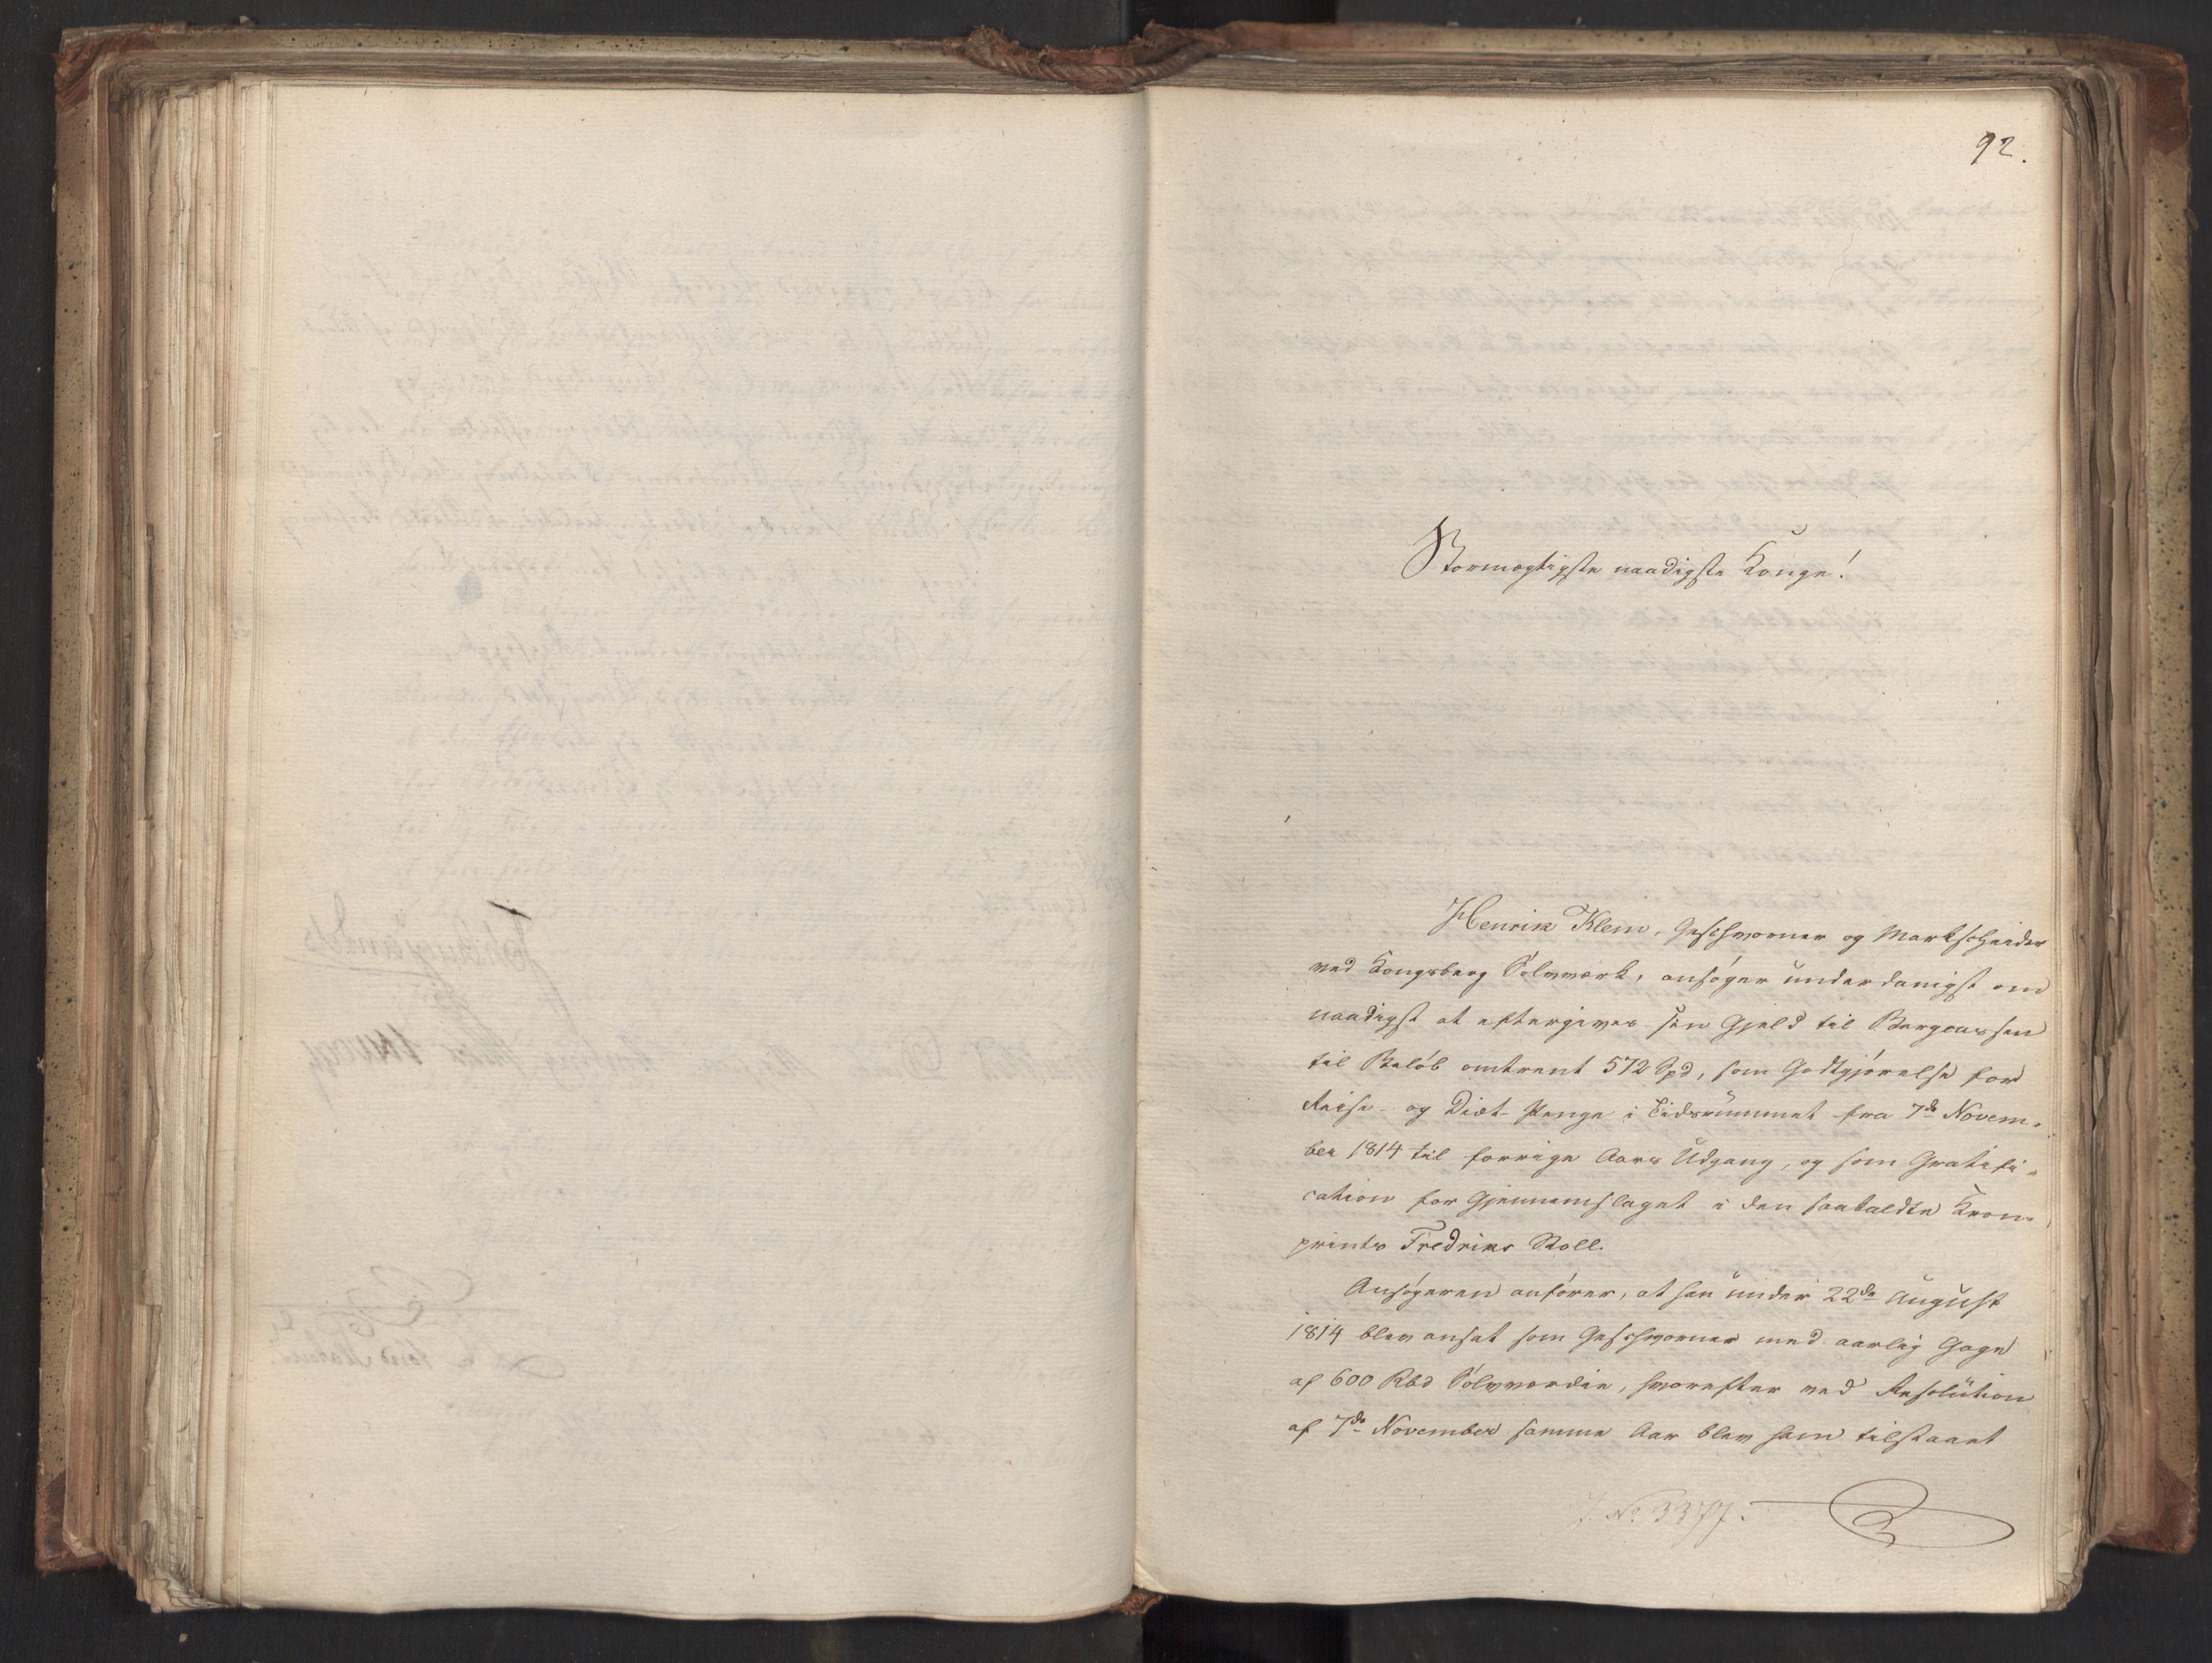 92.
Stormægtigste naadigste Konge!
Henrik Klem, Geschworner og Markscheider
ved Kongsberg Sölvværk, ansöger underdanigst om
naadigst at eftergives sin Gjeld til Bergcassen
til Belöb omtrent 572 Spd, som Godtgjörelse for
Reise- og Diæt-Penge i Tidsrummet fra 7de Novem-
ber 1814 til forrige Aars Udgang, og som Gratifi-
cation for Gjennemslaget i den saakaldte Kron-
prints Fredriks Stoll.
Ansögeren anförer, at han under 22de August
1814 blev ansat som Geschworner med aarlig Gage
af 600 Rbd Sölvværdie, hvorefter ved Resolution
af 7de November samme Aar blev ham tilstaaet
J. No 3377.